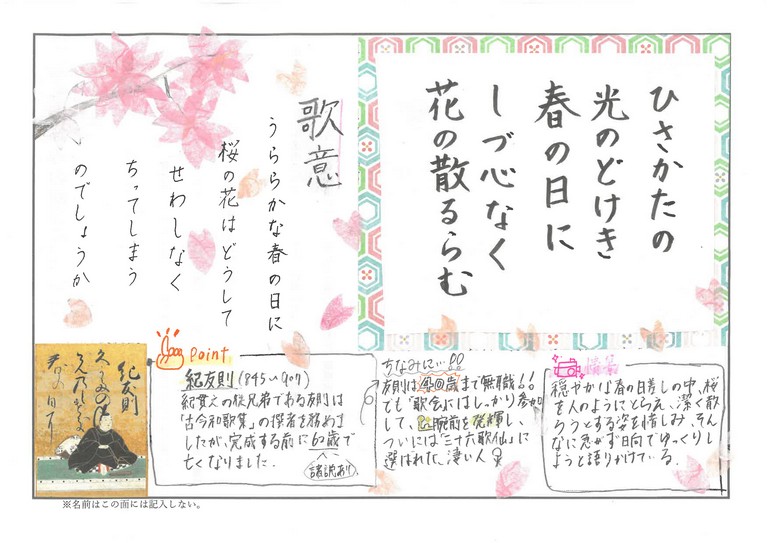 ひさかたの
光のどけき
春の日に
しづ心なく
花の散るらむ
歌意
うららかな春の日に
桜の花はどうして
せわしなく
ちってしまう
のでしょうか
紀友則
Point
紀友則(845〜907)
紀貫之の従兄弟である友則は
「古今和歌集」の撰者を務めま
したが、完成する前に62歳で
亡くなりました.
諸説あり
ちなみに…!!
友則は40歳まで無職!!
でも「歌会」にはしっかり参加
して、腕前を発揮し、
ついには「三十六歌仙」に
選ばれた、凄い人
穏やかな春の日差しの中、桜
を人のようにとらえ、潔く散
ろうとする姿を惜しみ、そん
なに急がず日向でゆっくりし
ようと語りかけている.
※名前はこの面には記入しない。